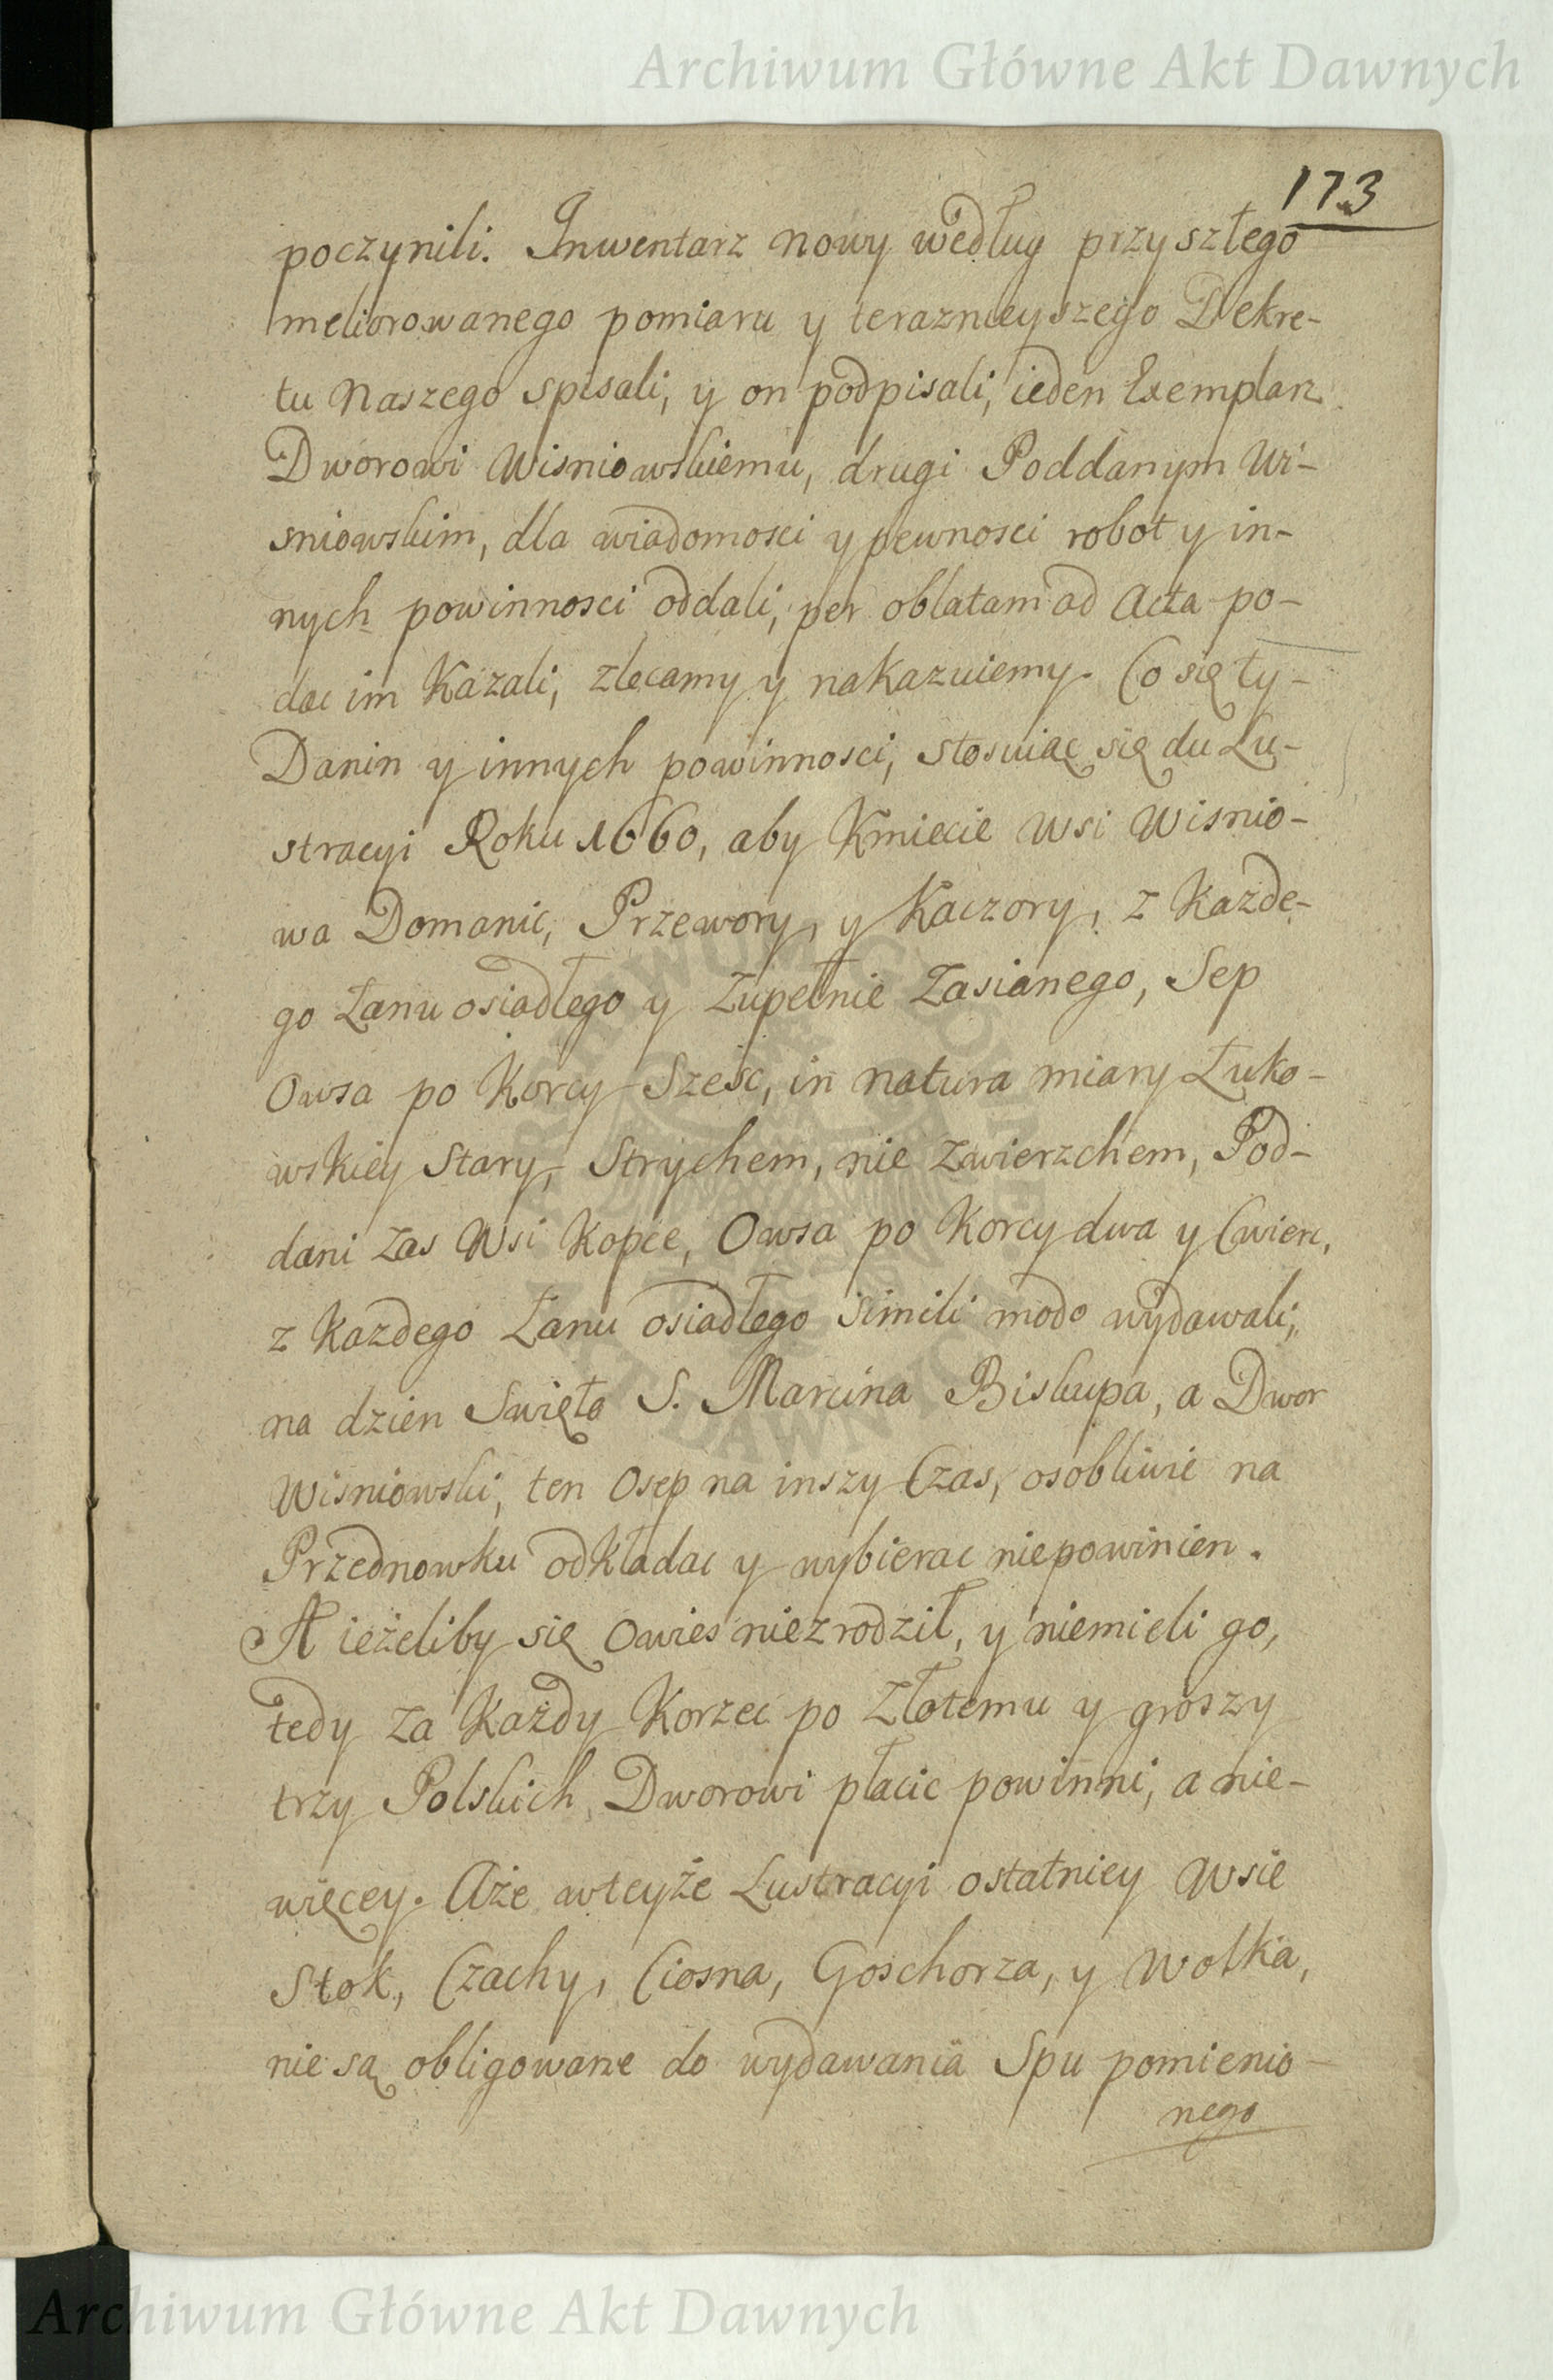 Archiwum Główne Akt Dawnych
173
poczynili. Inwentarz nowy według przyszłego
meliorowanego pomiaru y teraznieyszego Dekre-
tu Naszego spisali, y on podpisali, ieden Exemplarz
Dworowi Wisniowskiemu, drugi Poddanym Wi-
sniowskim, dla wiadomosci y pewnosci robot y in-
nych powinnosci oddali, per oblatam ad Acta po-
dac im Kazali, zlecamy y nakazuiemy. Co się ty-
Danin y innych powinnosci, stosuiąc się du Lu-
stracyi Roku 1660, aby Kmiecie Wsi Wisnio-
wa Domanic, Przewory, y Kaczory, z Kazde-
go Łanu osiadłego y Zupełnie Zasianego, Sep
Owsa po Korcy Szesc, in natura miary Łuko-
wskiey Stary, Strychem, nie Zwierzchem, Pod-
dani Zas Wsi Kopce, Owsa po Korcy dwa y Cwierc,
z Kazdego Łanu osiadłego simili modo wydawali,
na dzien Swięta S. Marcina Biskupa, a Dwor
Wisniowski, ten Osep na inszy Czas, osobliwie na
Przednowku odkładac y wybierac niepowinien.
A ieżeliby się Owies niezrodził, y niemieli go,
tedy Za Każdy Korzec po Złotemu y groszy
trzy Polskich Dworowi płacic powinni, a nie-
więcey. Aże wteyże Lustracyi ostatniey Wsie
Stok, Czachy, Ciosna, Goschorza, y Wolka,
nie są obligowane do wydawania Spu pomienio-
nego
ARCHIWUM GŁÓWNE AKT DAWNYCH
Archiwum Główne Akt Dawnych